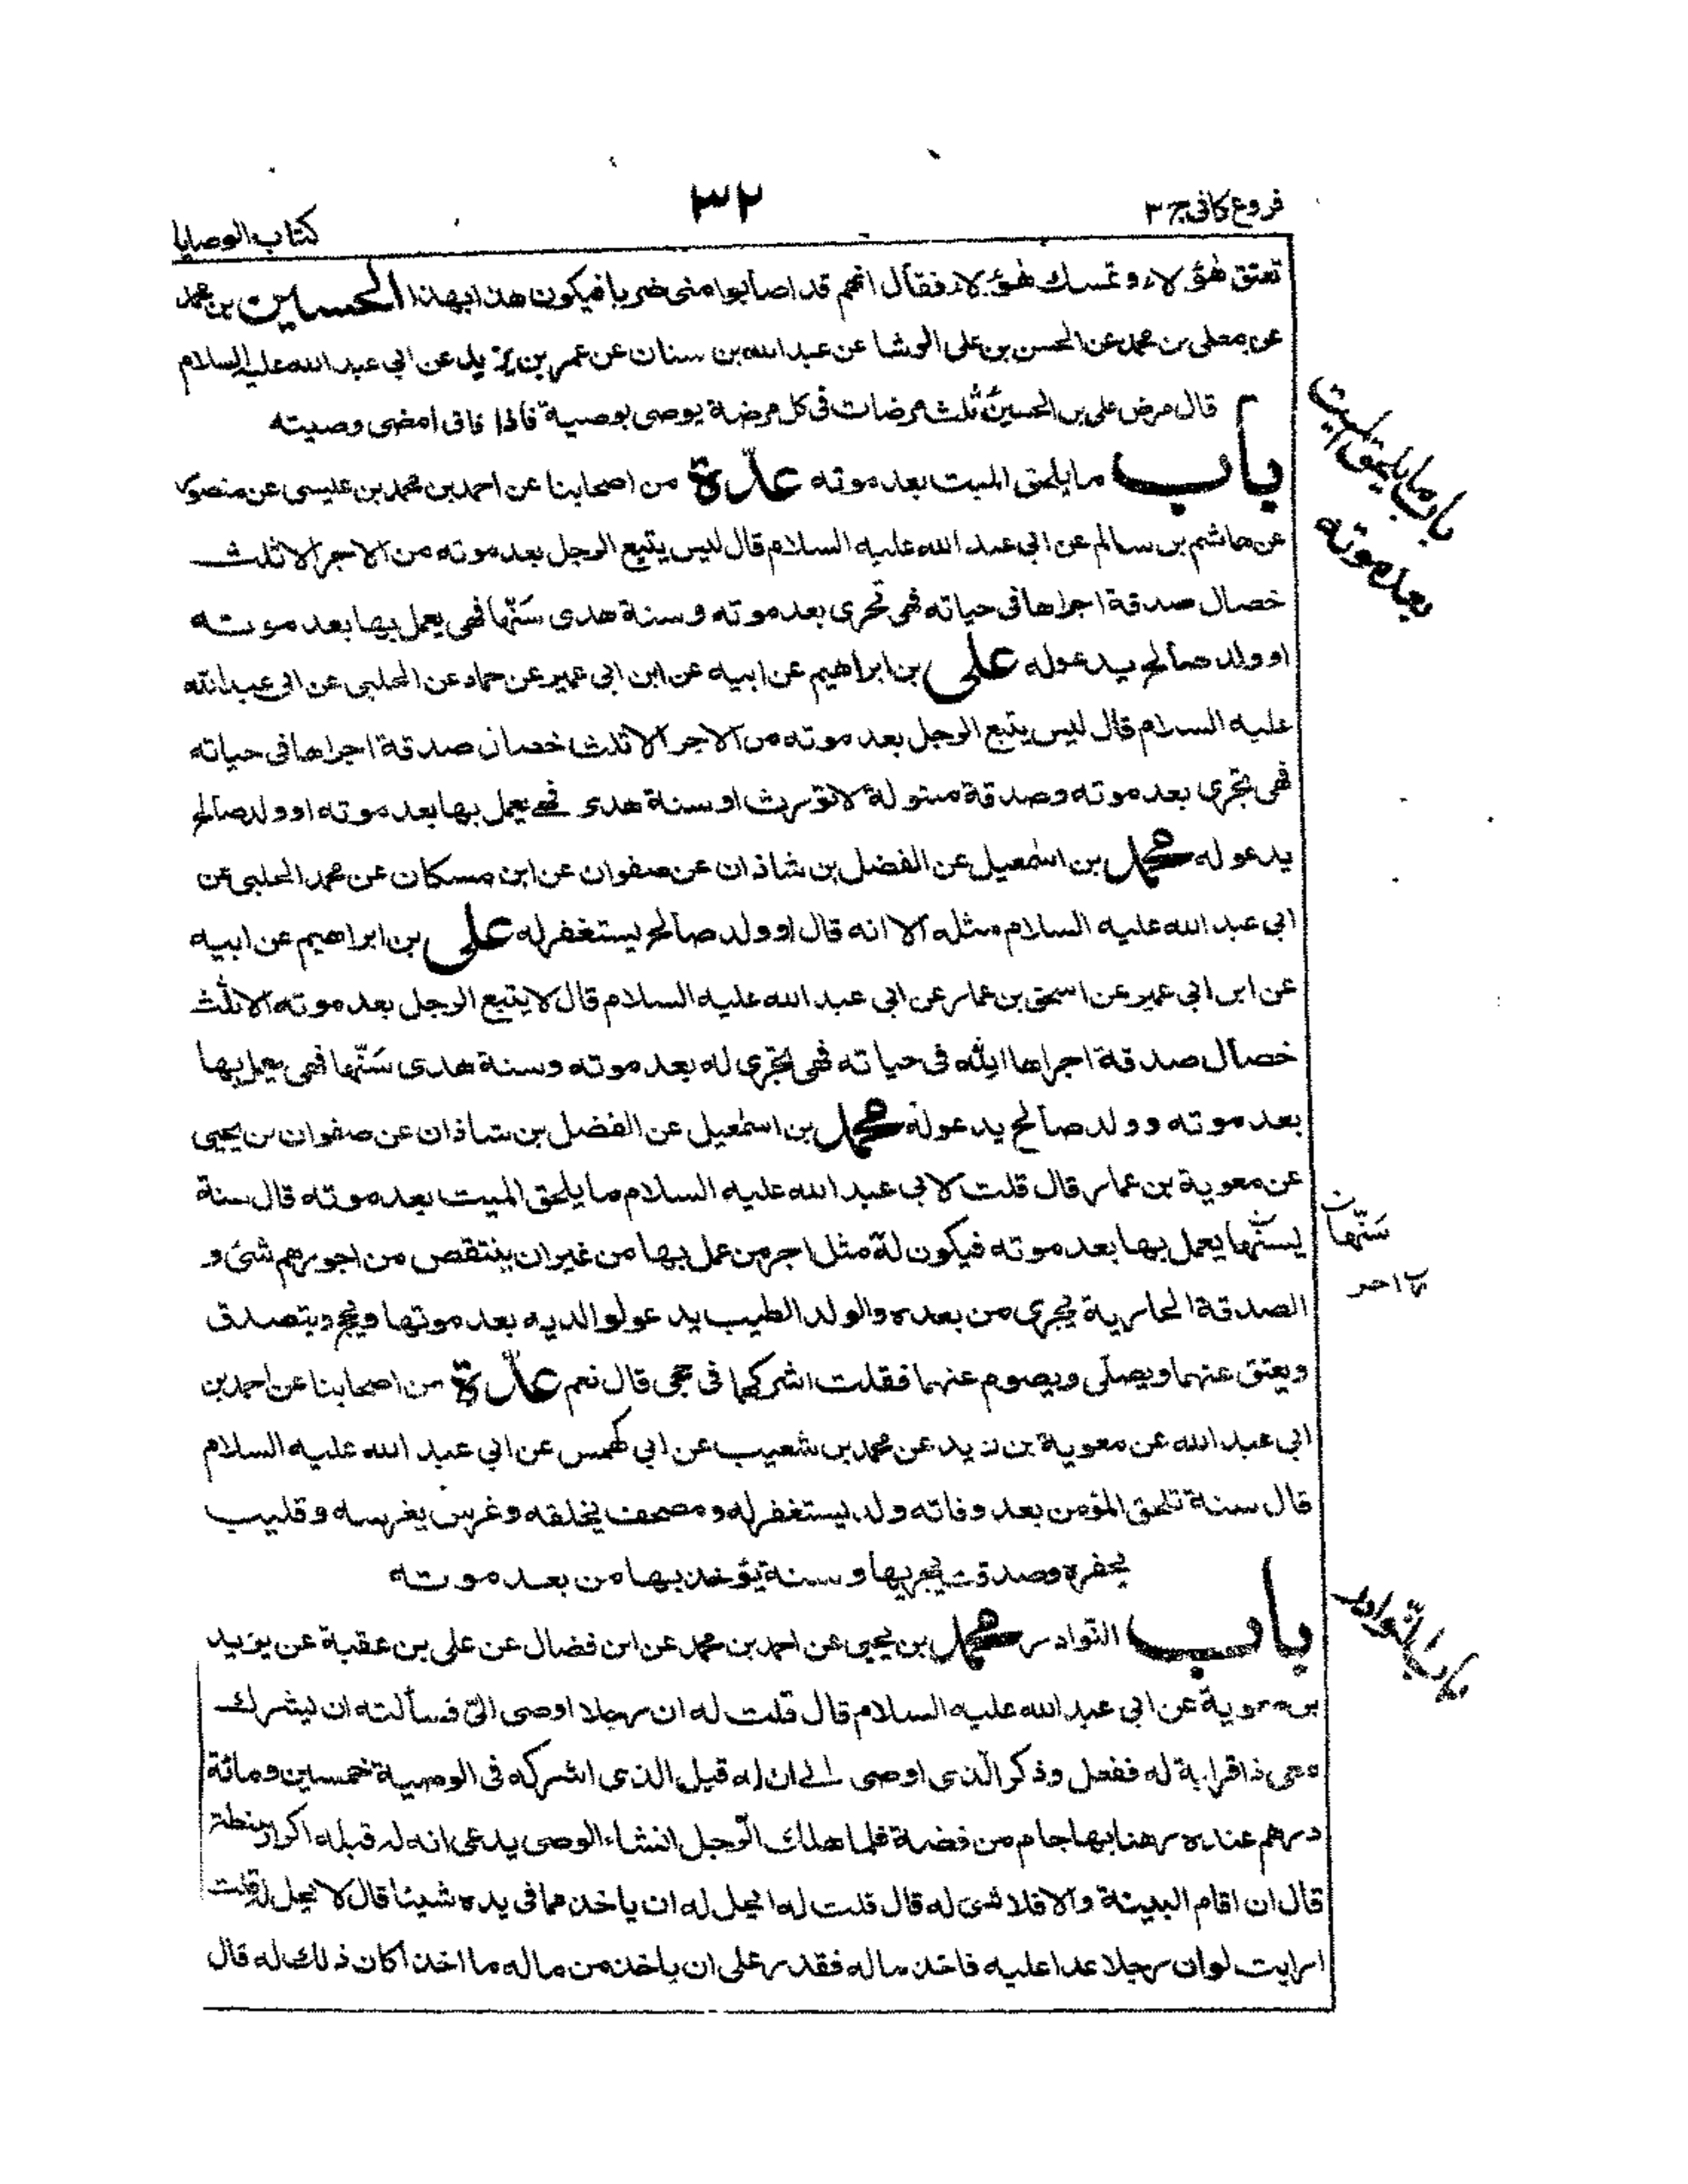 فروع کافی ج ۳
۳۲
کتاب الوصایا
تعتق هؤلاء وتمسك هؤلاء فقال انهم قد اصابوا منی ضربا فیکون هذا بهذا الحسین بن محمد
عن معلی بن محمد عن الحسن بن علی الوشا عن عبد الله بن سنان عن عمر بن یزید عن ابی عبد الله علیه السلام
قال مرض علی بن الحسین ثلث مرضات فی کل مرضة یوصی بوصیة فاذا فاق امضی وصیته
باب ما یلحق المیت بعد موته عدّة من اصحابنا عن احمد بن محمد بن عیسی عن منصور
عن هاشم بن سالم عن ابی عبد الله علیه السلام قال لیس یتبع الرجل بعد موته من الاجر الا ثلث
خصال صدقة اجراها فی حیاته فهی تجری بعد موته وسنة هدی سَنّها فهی یعمل بها بعد موته
او ولد صالح یدعو له علی بن ابراهیم عن ابیه عن ابن ابی عمیر عن حماد عن الحلبی عن ابی عبد الله
علیه السلام قال لیس یتبع الرجل بعد موته من الاجر الا ثلث خصال صدقة اجراها فی حیاته
فهی تجری بعد موته وصدقة مبتولة لا تورث او سنة هدی فهی یعمل بها بعد موته او ولد صالح
یدعو له محمد بن اسمعیل عن الفضل بن شاذان عن صفوان عن ابن مسکان عن محمد الحلبی عن
ابی عبد الله علیه السلام مثله الا انه قال او ولد صالح یستغفر له علی بن ابراهیم عن ابیه
عن ابن ابی عمیر عن اسحق بن عمار عن ابی عبد الله علیه السلام قال لا یتبع الرجل بعد موته الا ثلث
خصال صدقة اجراها الله فی حیاته فهی تجری له بعد موته وسنة هدی سَنّها فهی یعمل بها
بعد موته وولد صالح یدعو له محمد بن اسمعیل عن الفضل بن شاذان عن صفوان بن یحیی
عن معویة بن عمار قال قلت لابی عبد الله علیه السلام ما یلحق المیت بعد موته قال سنة
یسنّها یعمل بها بعد موته فیکون له مثل اجر من عمل بها من غیر ان ینتقص من اجورهم شئ و
الصدقة الجاریة یجری من بعده والولد الطیب یدعو لوالدیه بعد موتها ویحج ویتصدق
ویعتق عنهما ویصلّی ویصوم عنهما فقلت اشرکهما فی حجی قال نعم عدّة من اصحابنا عن احمد بن
ابی عبد الله عن معویة بن یزید عن محمد بن شعیب عن ابی کهمس عن ابی عبد الله علیه السلام
قال ستة تلحق المؤمن بعد وفاته ولد یستغفر له ومصحف یخلفه وغرس یغرسه وقلیب
یحفره وصدقة یجریها وسنة یؤخذ بها من بعد موته
باب النّوادر محمد بن یحیی عن احمد بن محمد عن ابن فضال عن علی بن عقبة عن یزید
بن معویة عن ابی عبد الله علیه السلام قال قلت له ان رجلا اوصی الیّ فسألته ان یشرك
معی ذا قرابة له ففعل وذکر الّذی اوصی الی ان له قبل الذی اشرکه فی الوصیة خمسین ومائة
درهم عنده رهنا بها جام من فضة فلما هلك الرّجل انشاء الوصی یدعی انه له قبله اکرار حنطة
قال ان اقام البینة والا فلا شئ له قال قلت له ایحل له ان یاخذ مما فی یده شیئا قال لا یحل له قلت
ارایت لو ان رجلا عدا علیه فاخذ ماله فقدر علی ان یاخذ من ماله ما اخذ اکان ذلك له قال
باب ما یلحق المیت
بعد موته
سَنّها ن
باب النّوادر